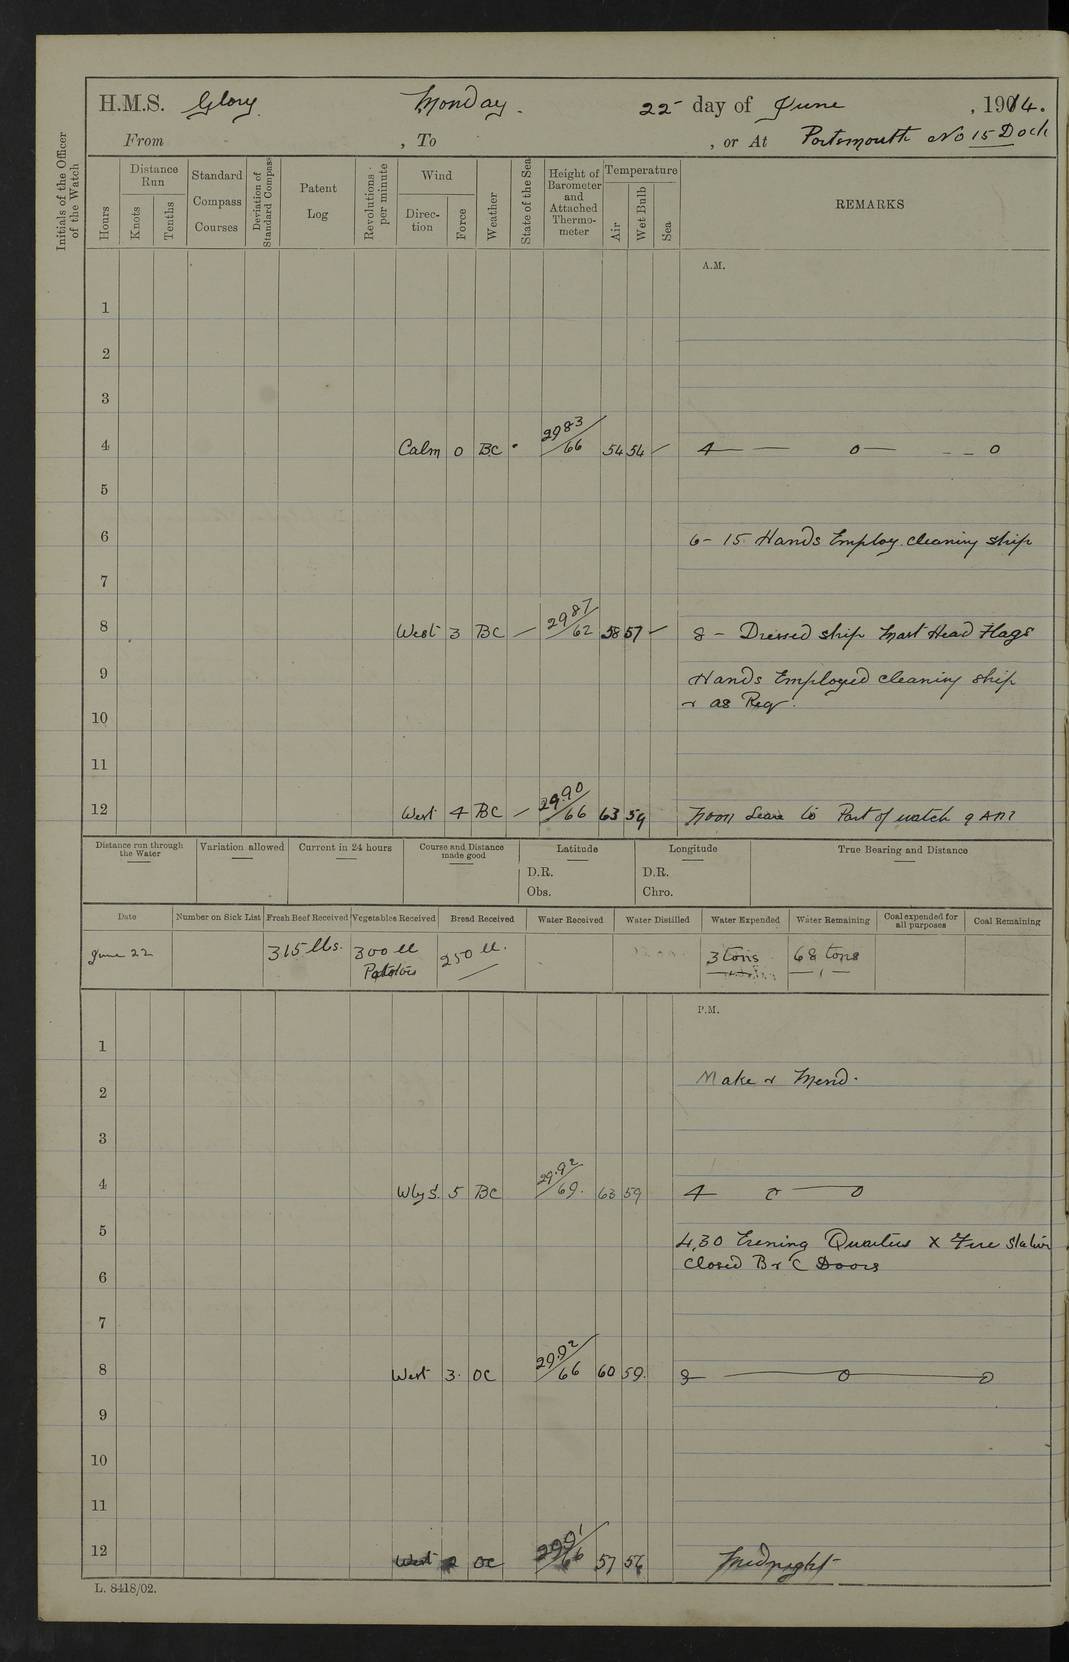 H.M.S. Glory Monday. 22 day of June, 1914.
From , To , or At Portsmouth No 15 Dock
Initials of the Officer of the Watch
Hours
Distance Run
Knots
Tenths
Standard Compass Courses
Deviation of Standard Compass
Patent Log
Revolutions per minute
Wind
Direction
Force
Weather
State of the Sea
Height of Barometer and Attached Thermometer
Temperature
Air
Wet Bulb
Sea
REMARKS
A.M.
1
2
3
4 Calm 0 BC 2983/66 54 54 4 — — 0 — — — 0
5
6 6-15 Hands Employ. cleaning ship
7
8 West 3 BC — 2987/62 58 57 — 8 – Dressed ship Mast Head Flags
9 Hands Employed cleaning ship
10 & as Req.
11
12 West 4 BC — 29.90/66 63 59 Noon Leave to Part of watch 9 AM
Distance run through the Water
Variation allowed
Current in 24 hours
Course and Distance made good
Latitude
D.R.
Obs.
Longitude
D.R.
Chro.
True Bearing and Distance
Date Number on Sick List Fresh Beef Received Vegetables Received Bread Received Water Received Water Distilled Water Expended Water Remaining Coal expended for all purposes Coal Remaining
June 22 315 lbs. 300 ll 250 ll. 3 tons 68 tons
Potatoes
P.M.
1
2 Make & Mend.
3
4 Wly'd. 5 BC 29.92/69. 63 59 4 0 — 0
5 4,30 Evening Quarters X Fire Station
6 Closed B & C Doors
7
8 West 3. OC 29.92/66 60 59. 8 — 0 — 0
9
10
11
12 West 2 OC 29.91/66 57 56 Midnight
L. 8418/02.